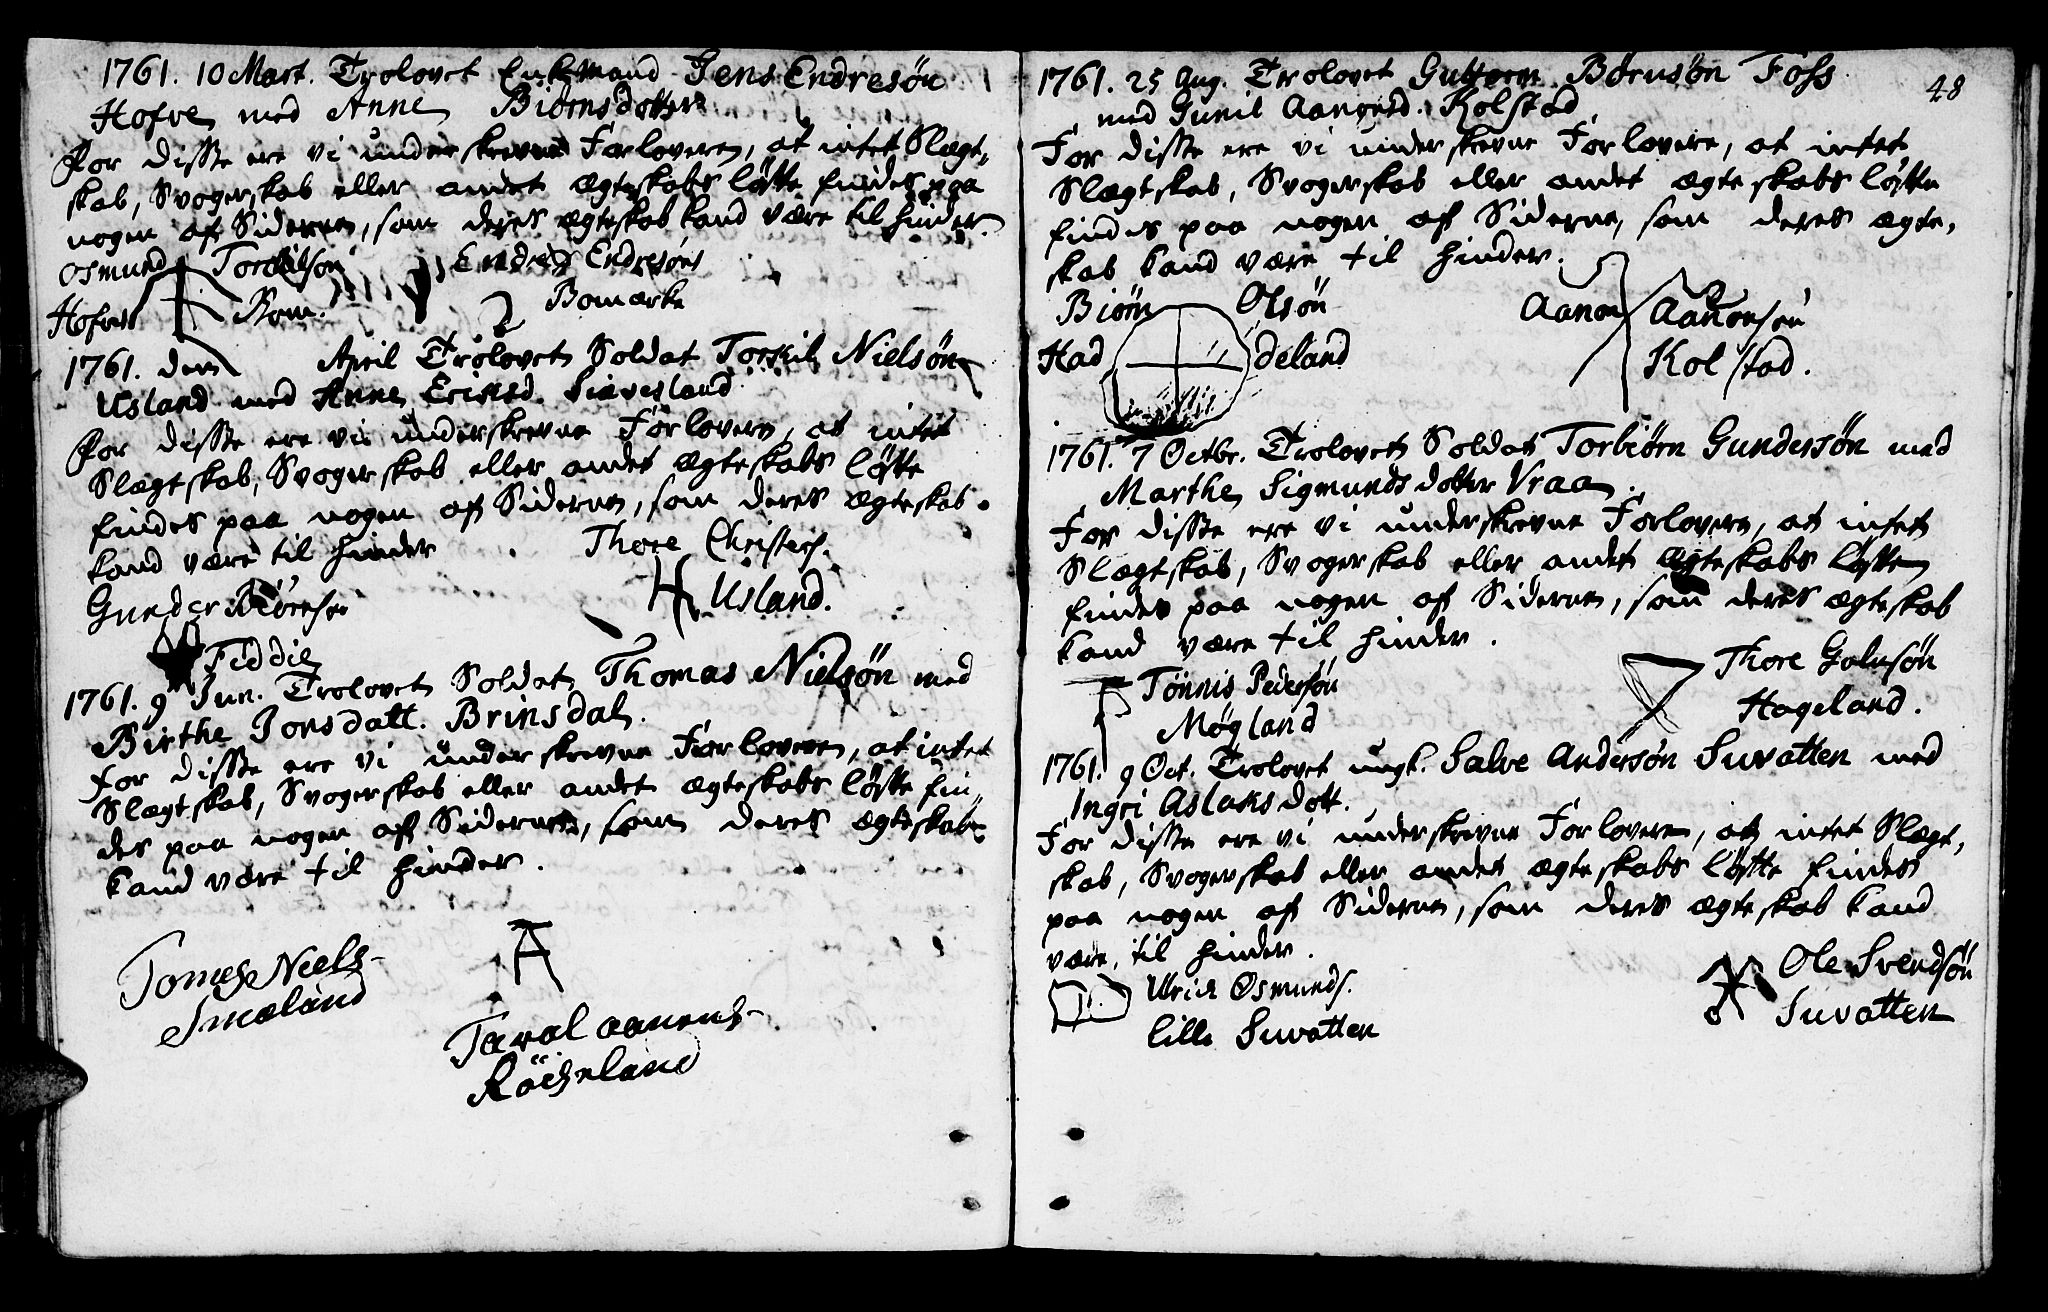 1761. 10 Mart. Trolovet Enkemand Jens Endresøn
Hofve med Anne Biørnsdotter
For disse ere vi underskrevne Forlovere, at intet Slægt,
skab, Svogerskab eller andet ægteskabs løfte findes paa
nogen af Siderne, som deres ægteskab kand være til hinder.
Osmund Torkilsøn Endre Endresøns
Hofve Bom. Bomærke
1761. den April Trolovet Soldat Torkil Nielsøn
Usland med Anne Ericksd.
For disse ere vi underskrevne Forlovere, at intet
Slægtskab, Svogerskab eller andet ægteskabs løfte
findes paa nogen af Siderne, som deres ægteskab
kand være til hinder Thore Christens.
Gunder Biørnsen Usland.
Fiddie
1761. 9 Jun. Trolovet Soldat Thomas Nielsøn med
Birthe Jonsdatt. Brinsdal.
For disse ere vi underskrevne Forlovere, at intet
Slægtskab, Svogerskab eller andet ægteskabs løfte fin,
des paa nogen af Siderne, som deres ægteskab
kand være til hinder.
Tomes Niels
Smæland
Taral aanens
Röiseland
48
1761. 25 Aug. Trolovet Guttorm Børusøn Foss
med Gunil Aanonsd. Kolstad
For disse ere vi underskrevne Forlovere, at intet
Slægtskab, Svogerskab eller andet ægteskabs løfte
findes paa nogen af Siderne, som deres ægte,
skab kand være til hinder.
Biørn Olsøn Aanon Aanonsøn
Had deland Kolstad.
1761. 7 Octbr. Trolovet Soldat Torbiørn Gundersøn med
Marthe Sigmundsdotter Vraa.
For disse ere vi underskrevne Forlovere, at intet
Slægtskab, Svogerskab eller andet ægteskabs løfte
findes paa nogen af Siderne, som deres ægteskab
kand være til hinder.
Tønnis Pedersøn Thore
Møgland Hageland.
1761. 9 Oct. Trolovet ungk. Salve Andersøn Suvatten med
Ingri Aslaksdott.
For disse ere vi underskrevne Forlovere, at intet Slægt,
skab, Svogerskab eller andet ægteskabs løfte findes
paa nogen af Siderne, som deres ægteskab kand
være til hinder.
Ulrich Osmunds. Ole Svendsøn
lille Suvatten Suvatten